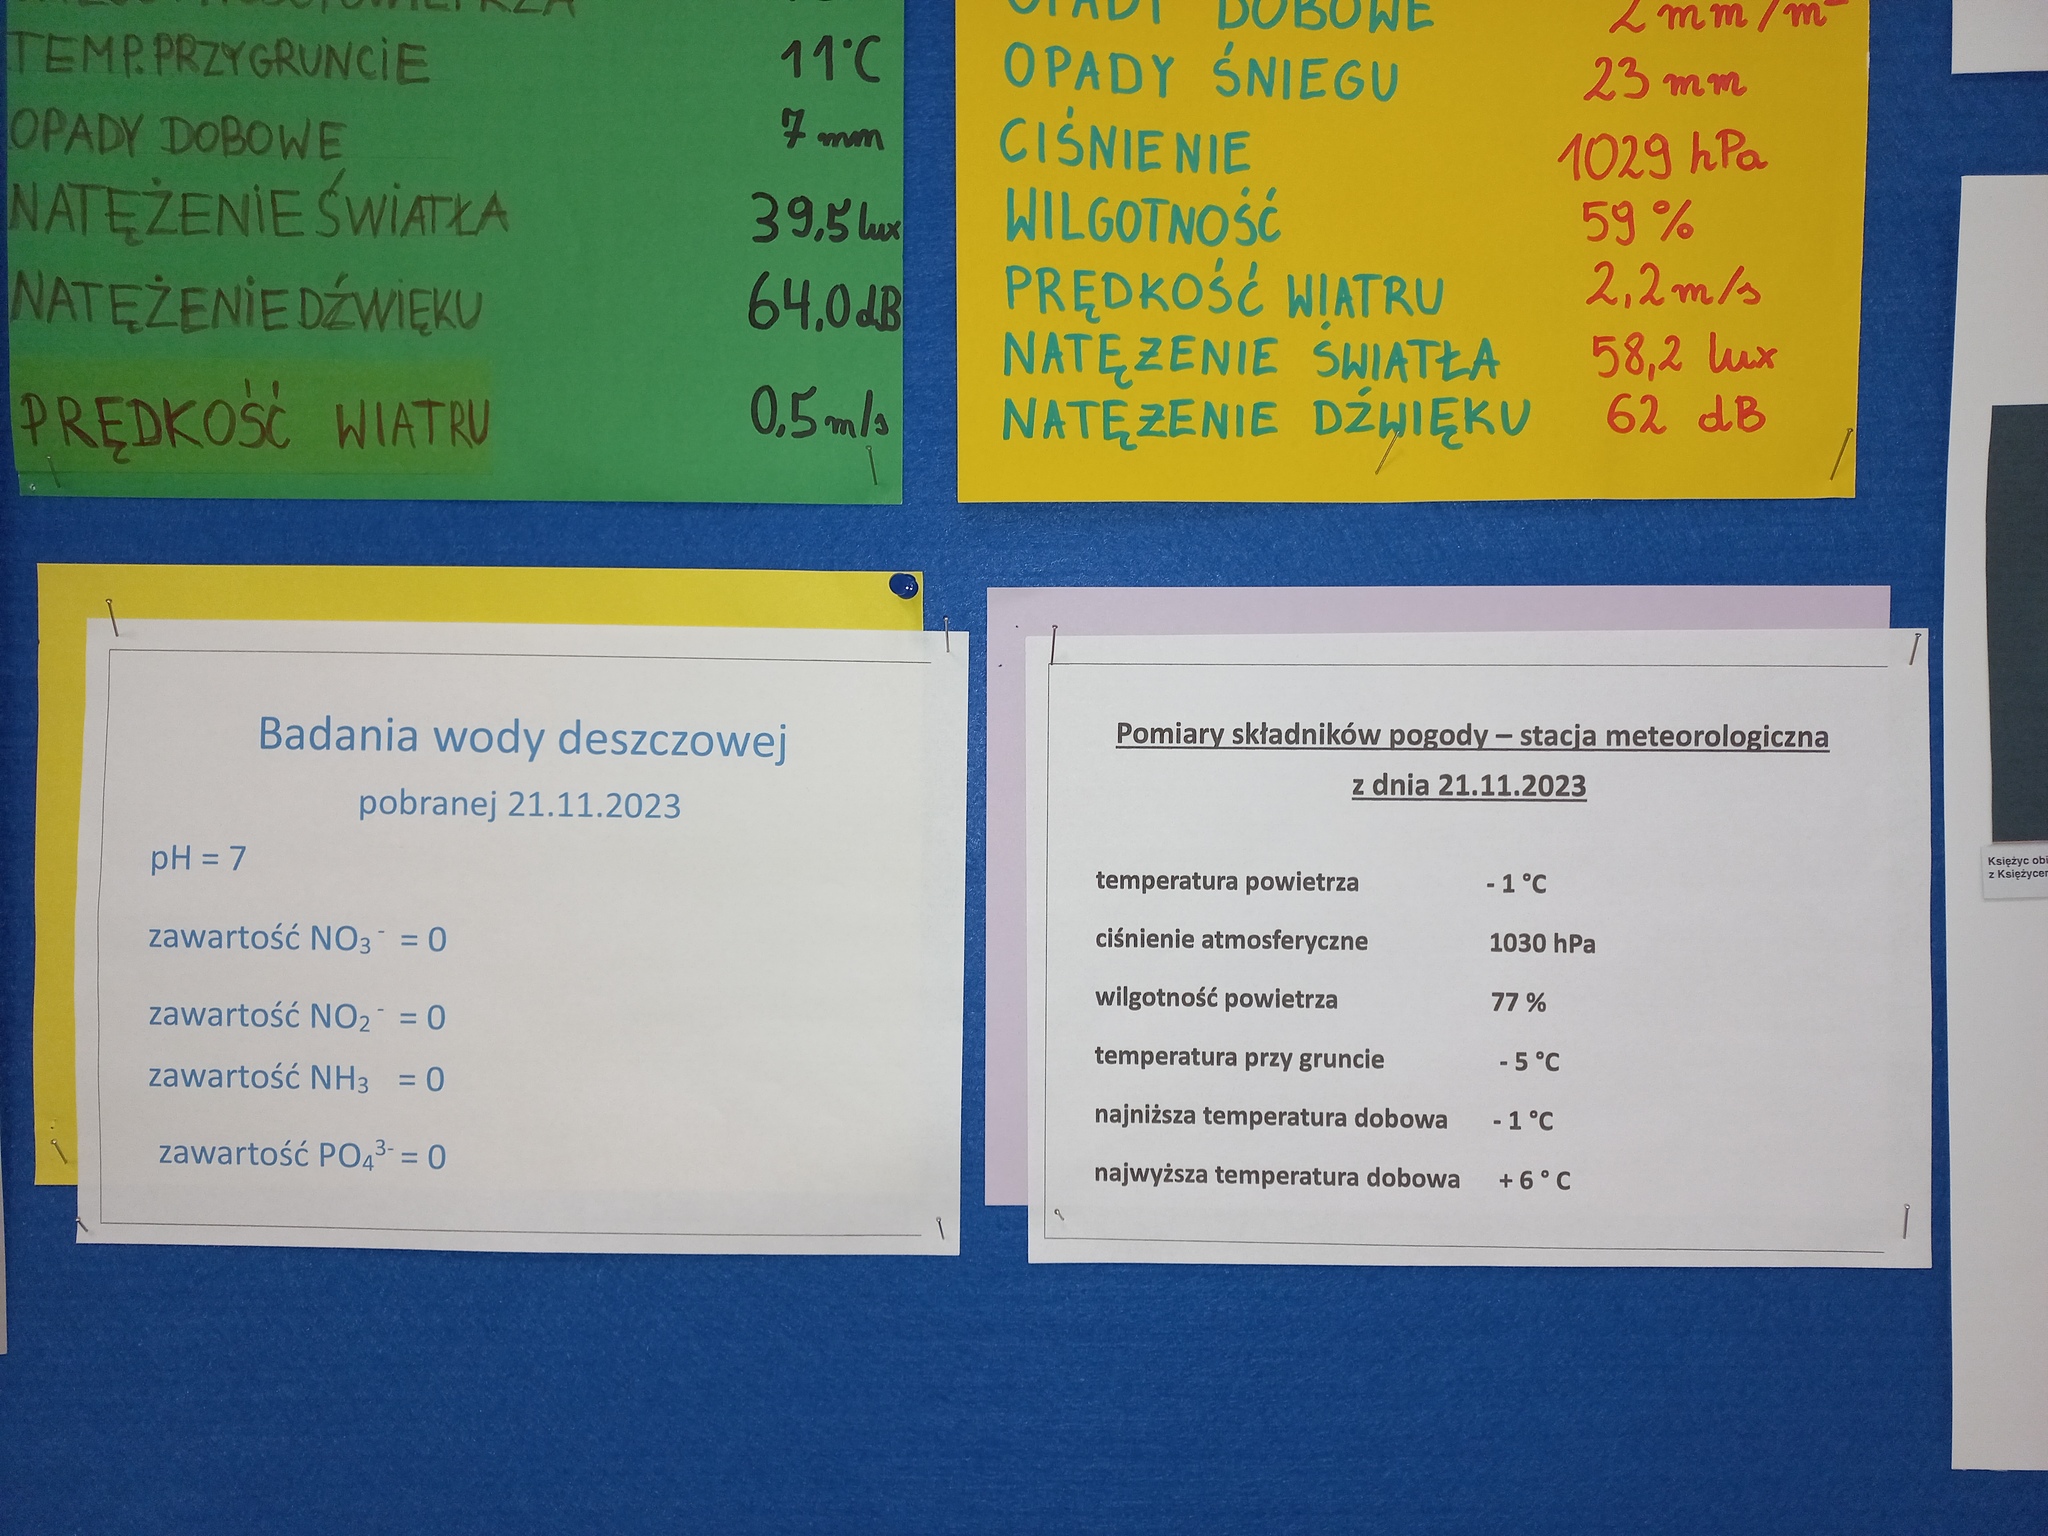 TEMP. PRZY GRUNCIE 11°C
OPADY DOBOWE 7 mm
NATĘŻENIE ŚWIATŁA 39,5 lux
NATĘŻENIE DŹWIĘKU 64,0 dB
PRĘDKOŚĆ WIATRU 0,5 m/s
OPADY DOBOWE 2 mm/m²
OPADY ŚNIEGU 23 mm
CIŚNIENIE 1029 hPa
WILGOTNOŚĆ 59 %
PRĘDKOŚĆ WIATRU 2,2 m/s
NATĘZENIE ŚWIATŁA 58,2 lux
NATĘZENIE DŹWIĘKU 62 dB
Badania wody deszczowej
pobranej 21.11.2023
pH = 7
zawartość NO₃⁻ = 0
zawartość NO₂⁻ = 0
zawartość NH₃ = 0
zawartość PO₄³⁻ = 0
Pomiary składników pogody – stacja meteorologiczna
z dnia 21.11.2023
temperatura powietrza - 1 °C
ciśnienie atmosferyczne 1030 hPa
wilgotność powietrza 77 %
temperatura przy gruncie - 5 °C
najniższa temperatura dobowa - 1 °C
najwyższa temperatura dobowa + 6 ° C
Księżyc obi
z Księżycem